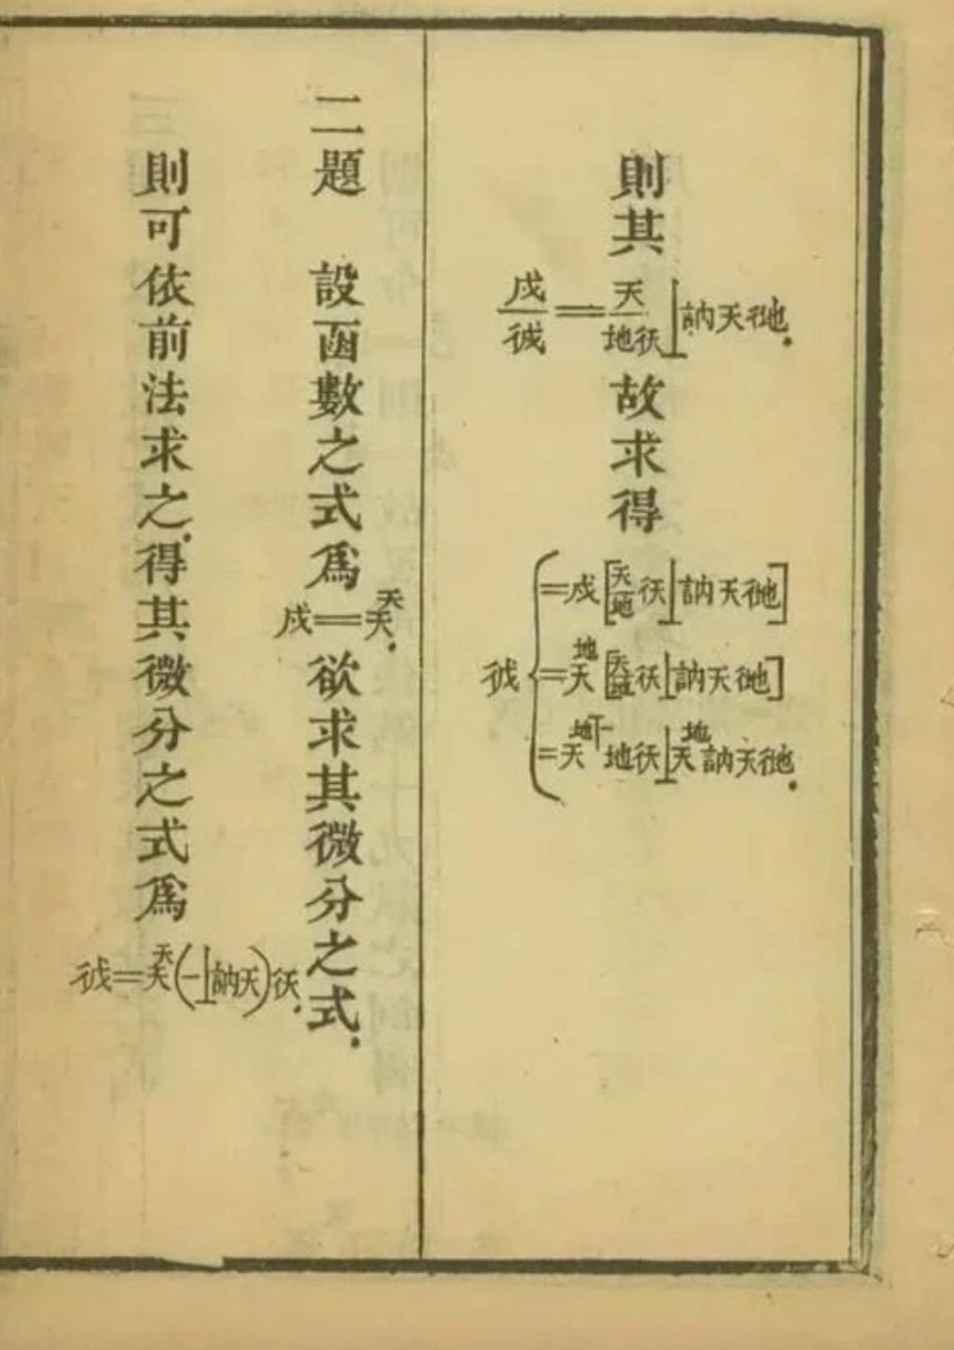 則其
戌/彳戌=天/地彳天⊥訥天彳地.
故求得
彳戌{=戌[天/地彳天⊥訥天彳地]
=天^地[天/地彳天⊥訥天彳地]
=天^地丅一地彳天⊥天^地訥天彳地.
二題 設函數之式爲
戌=天^天.
欲求其微分之式.
則可依前法求之.得其微分之式爲
彳戌=天^天(一⊥訥天)彳天.